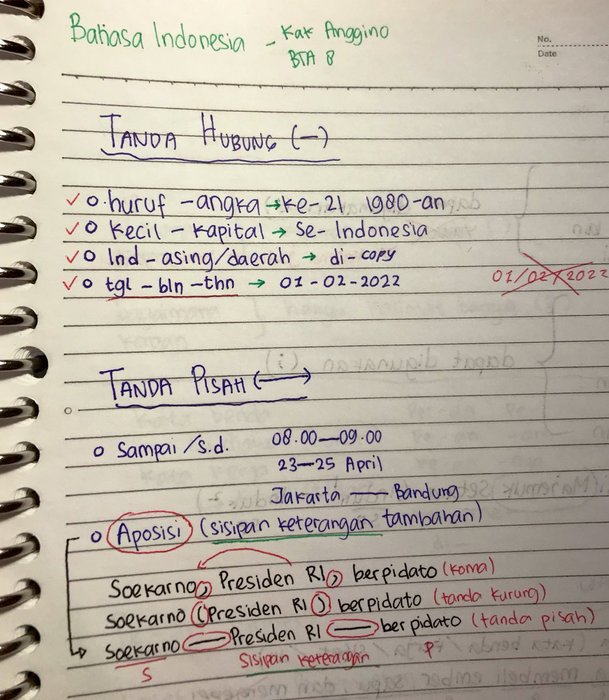 Bahasa Indonesia - Kak Anggino
BTA 8
No.
Date
TANDA HUBUNG (-)
✓ o huruf - angka → ke-21 1980-an
✓ o kecil - kapital → Se-Indonesia
✓ o Ind - asing/daerah → di-copy
✓ o tgl - bln - thn → 01-02-2022 01/02/2022
TANDA PISAH (—)
o Sampai /s.d. 08.00—09.00
23—25 April
Jakarta — Bandung
o Aposisi (sisipan keterangan tambahan)
Soekarno, Presiden RI, berpidato (koma)
Soekarno (Presiden RI) berpidato (tanda kurung)
Soekarno — Presiden RI — berpidato (tanda pisah)
S Sisipan keterangan P